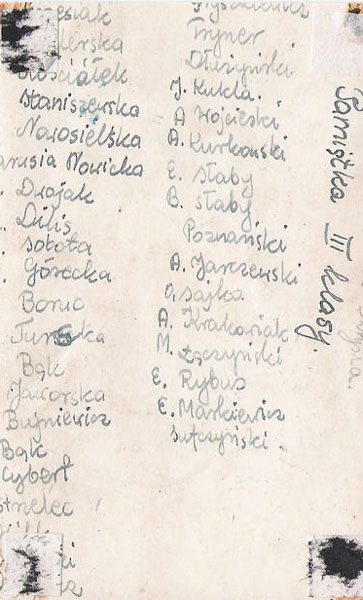 Kościółek
Staniszewska
Nowosielska
anusia Nowicka
Dwojak
Dilis
Sobota
Górecka
Boruc
Turecka
Bąk
Jaworska
Bujniewicz
Bąk
Cybert
strzelec
Fryner
Dłużyński
J. Kukla
A Wojcieski
A. Kurkowski
E. Słaby
B. Słaby
Poznański
A. Jarczewski
O. Sajko
A. Krakowiak
M. Łączyński
E. Rybus
E. Markiewicz
Sutczyński
Pamiątka III klasy.